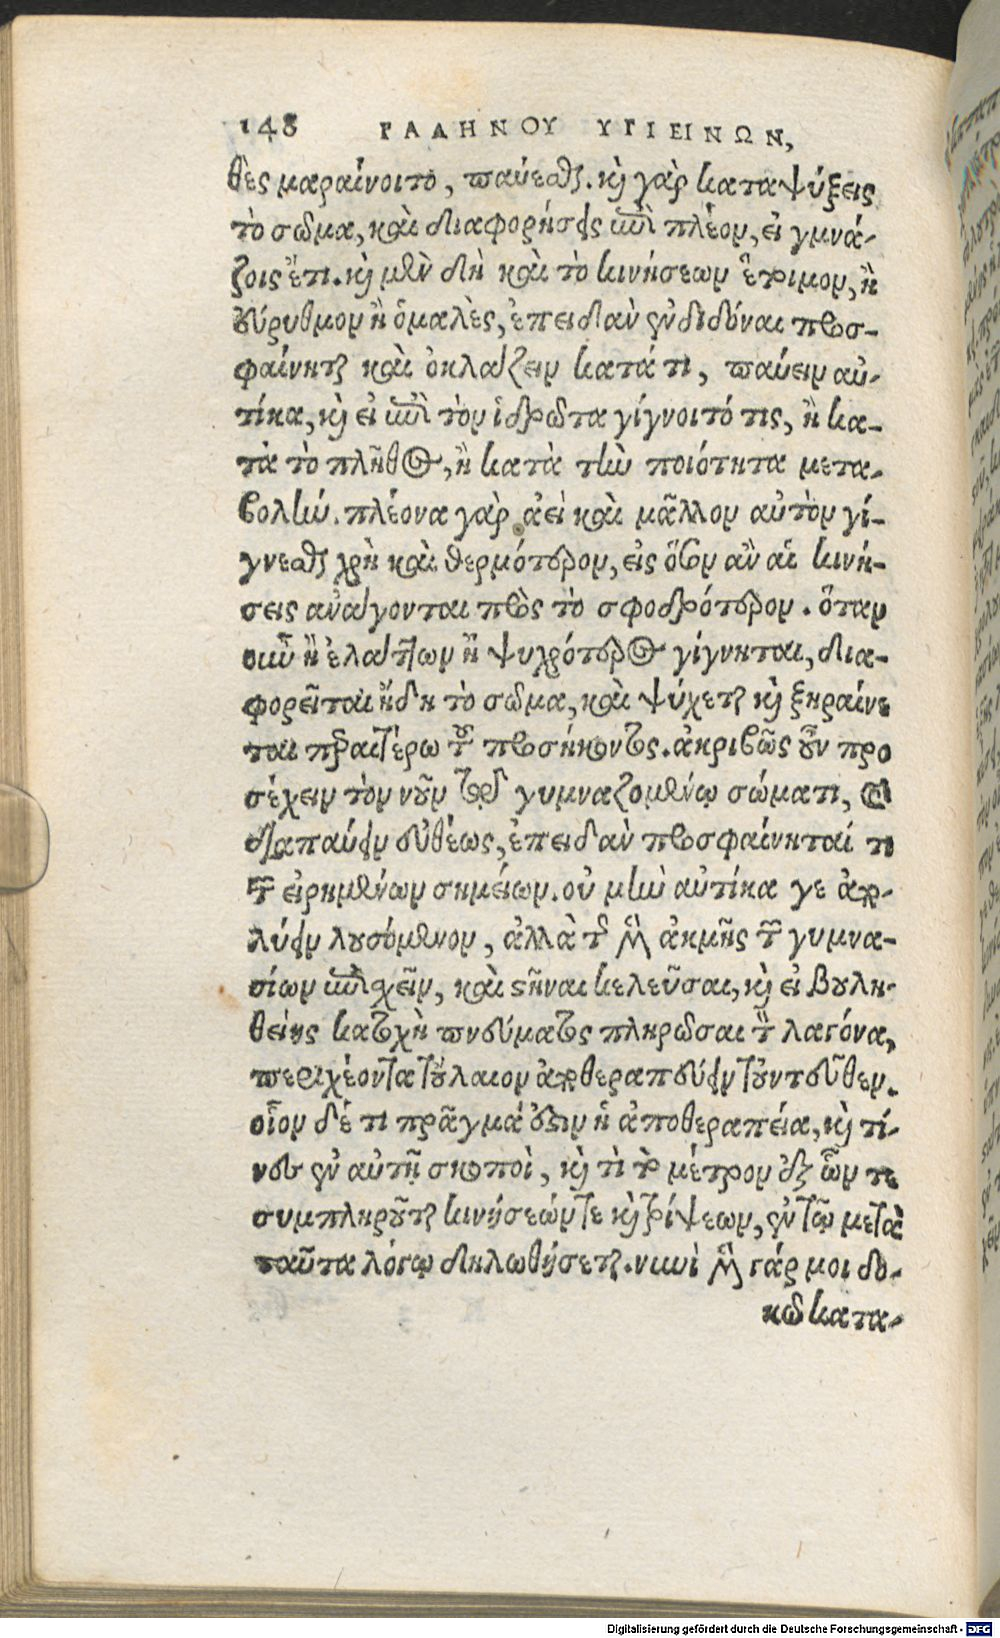 148 ΓΑΛΗΝΟΥ ΥΓΙΕΙΝΩΝ,
θὲς μαραίνοιτο, παύεσθαι. καὶ γὰρ καταψύξεις
τὸ σῶμα, καὶ διαφορήσεις ἐπὶ πλέον, εἰ γυμνά-
ζοις ἔτι. καὶ μὲν δὴ καὶ τὸ κινήσεων ἕτοιμον, ἢ
εὔρυθμον ἢ ὁμαλὲς, ἐπειδὰν ἐνδιδόναι προσ-
φαίνηται καὶ ὀκλάζειν κατά τι, παύειν αὐ-
τίκα, καὶ εἰ ἐπὶ τὸν ἱδρῶτα γίγνοιτό τις, ἢ κα-
τὰ τὸ πλῆθος, ἢ κατὰ τὴν ποιότητα μετα-
βολὴ. πλέονα γὰρ ἀεὶ καὶ μᾶλλον αὐτὸν γί-
γνεσθαι χρὴ καὶ θερμότερον, εἰς ὅσον ἂν αἱ κινή-
σεις ἀνάγονται πρὸς τὸ σφοδρότερον. ὅταν
οὖν ἢ ἐλάττων ἢ ψυχρότερος γίγνηται, δια-
φορεῖται ἤδη τὸ σῶμα, καὶ ψύχεται καὶ ξηραίνε
ται περαιτέρω τοῦ προσήκοντος. ἀκριβῶς οὖν προ
σέχειν τὸν νοῦν τῷ γυμναζομένῳ σώματι, καὶ
διαπαύειν εὐθέως, ἐπειδὰν προσφαίνηταί τι
τῶν εἰρημένων σημείων. οὐ μὴν αὐτίκα γε ἀπο-
λύειν λουσόμενον, ἀλλὰ τῆς μὲν ἀκμῆς τῶν γυμνα-
σίων ἐπισχεῖν, καὶ στῆναι κελεῦσαι, καὶ εἰ βουλη-
θείης κατοχῇ πνεύματος πληρῶσαι τὸν λαγόνα,
περιχέοντα τοὔλαιον ἀποθεραπεύειν τοὐντεῦθεν.
οἷον δέ τι πρᾶγμά ἐστιν ἡ ἀποθεραπεία, καὶ τί-
νες ἐν αὐτῇ σκοποὶ, καὶ τί τὸ μέτρον ἐξ ὧν τε
συμπληροῦται κινήσεών τε καὶ τρίψεων, ἐν τῷ μετὰ
ταῦτα λόγῳ δηλωθήσεται. νυνὶ μὲν γάρ μοι δο-
κῶ κατα-
Digitalisierung gefördert durch die Deutsche Forschungsgemeinschaft - DFG